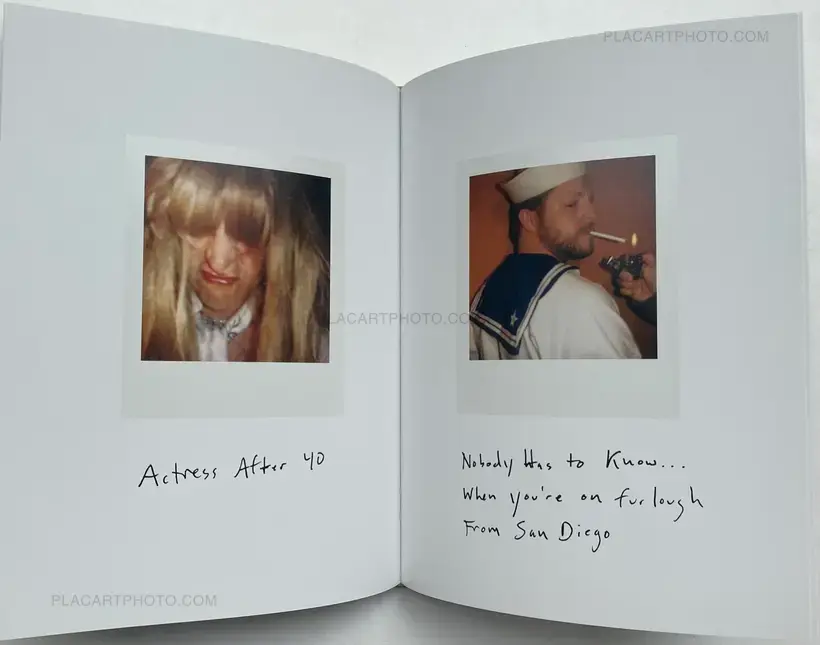 PLACARTPHOTO.COM
PLACARTPHOTO.COM
Actress After 40
Nobody Has to Know...
When you're on furlough
From San Diego
PLACARTPHOTO.COM